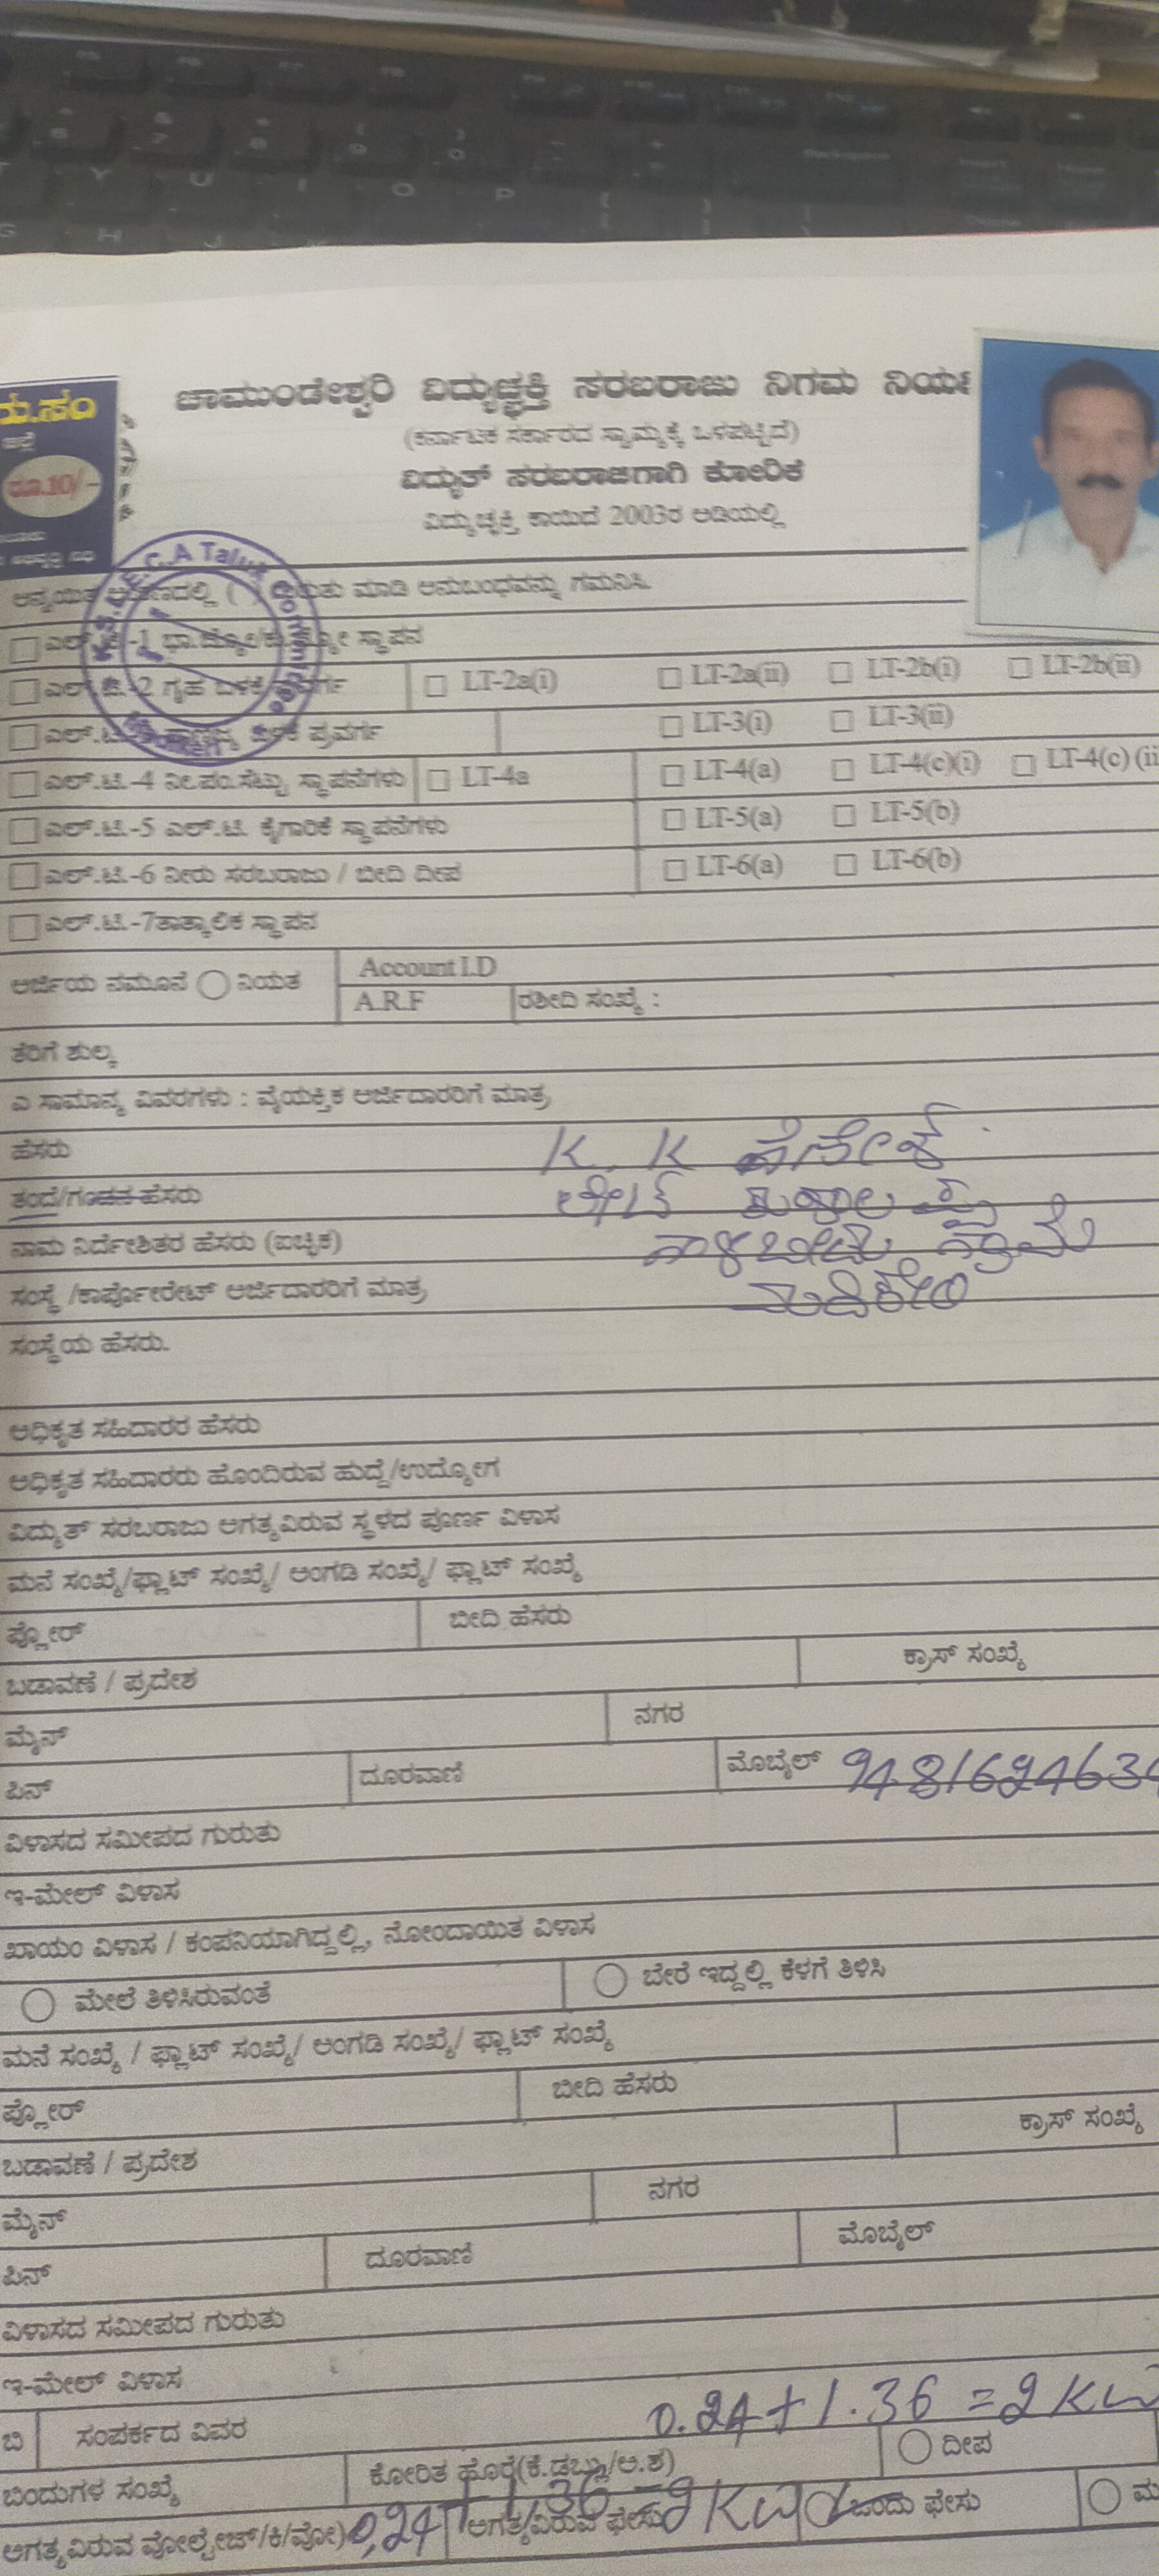 ರೂ.10/-
ಚಾಮುಂಡೇಶ್ವರಿ ವಿದ್ಯುಚ್ಛಕ್ತಿ ಸರಬರಾಜು ನಿಗಮ
(ಕರ್ನಾಟಕ ಸರ್ಕಾರದ ಸ್ವಾಮ್ಯಕ್ಕೆ ಒಳಪಟ್ಟಿದೆ)
ವಿದ್ಯುತ್ ಸರಬರಾಜಿಗಾಗಿ ಕೋರಿಕೆ
ವಿದ್ಯುಚ್ಛಕ್ತಿ ಕಾಯಿದೆ 2003ರ ಅಡಿಯಲ್ಲಿ
ಮಾಡಿ ಅನುಬಂಧವನ್ನು ಗಮನಿಸಿ.
ಸ್ಥಾಪನ
ಎಲ್.ಟಿ.-2 ಗೃಹ ಬಳಕೆ LT-2a(i) LT-2a(ii) LT-2b(i) LT-2b(ii)
ಬಳಕೆ ಪ್ರವರ್ಗ LT-3(i) LT-3(ii)
ಎಲ್.ಟಿ.-4 ನೀ.ಪಂ.ಸೆಟ್ಟು ಸ್ಥಾಪನೆಗಳು LT-4a LT-4(a) LT-4(c)(i) LT-4(c)(ii
ಎಲ್.ಟಿ.-5 ಎಲ್.ಟಿ. ಕೈಗಾರಿಕೆ ಸ್ಥಾಪನೆಗಳು LT-5(a) LT-5(b)
ಎಲ್.ಟಿ.-6 ನೀರು ಸರಬರಾಜು / ಬೀದಿ ದೀಪ LT-6(a) LT-6(b)
ಎಲ್.ಟಿ.-7ತಾತ್ಕಾಲಿಕ ಸ್ಥಾಪನ
ಅರ್ಜಿಯ ನಮೂನೆ ನಿಯತ Account I.D
A.R.F ರಶೀದಿ ಸಂಖ್ಯೆ :
ತೆರಿಗೆ ಶುಲ್ಕ
ಎ ಸಾಮಾನ್ಯ ವಿವರಗಳು : ವೈಯಕ್ತಿಕ ಅರ್ಜಿದಾರರಿಗೆ ಮಾತ್ರ
ಹೆಸರು K. K
ತಂದೆ/ಗಂಡನ ಹೆಸರು ಲೇಟ್
ನಾಮ ನಿರ್ದೇಶಿತರ ಹೆಸರು (ಐಚ್ಛಿಕ) ಗ್ರಾಮ
ಸಂಸ್ಥೆ /ಕಾರ್ಪೋರೇಟ್ ಅರ್ಜಿದಾರರಿಗೆ ಮಾತ್ರ ಮಡಿಕೇರಿ
ಸಂಸ್ಥೆಯ ಹೆಸರು.
ಅಧಿಕೃತ ಸಹಿದಾರರ ಹೆಸರು
ಅಧಿಕೃತ ಸಹಿದಾರರು ಹೊಂದಿರುವ ಹುದ್ದೆ/ಉದ್ಯೋಗ
ವಿದ್ಯುತ್ ಸರಬರಾಜು ಅಗತ್ಯವಿರುವ ಸ್ಥಳದ ಪೂರ್ಣ ವಿಳಾಸ
ಮನೆ ಸಂಖ್ಯೆ/ಫ್ಲಾಟ್ ಸಂಖ್ಯೆ/ ಅಂಗಡಿ ಸಂಖ್ಯೆ/ ಫ್ಲಾಟ್ ಸಂಖ್ಯೆ
ಫ್ಲೋರ್ ಬೀದಿ ಹೆಸರು
ಬಡಾವಣೆ / ಪ್ರದೇಶ ಕ್ರಾಸ್ ಸಂಖ್ಯೆ
ಮೈನ್ ನಗರ
ಪಿನ್ ದೂರವಾಣಿ ಮೊಬೈಲ್ 948162463
ವಿಳಾಸದ ಸಮೀಪದ ಗುರುತು
ಇ-ಮೇಲ್ ವಿಳಾಸ
ಖಾಯಂ ವಿಳಾಸ / ಕಂಪನಿಯಾಗಿದ್ದಲ್ಲಿ, ನೋಂದಾಯಿತ ವಿಳಾಸ
ಮೇಲೆ ತಿಳಿಸಿರುವಂತೆ ಬೇರೆ ಇದ್ದಲ್ಲಿ ಕೆಳಗೆ ತಿಳಿಸಿ
ಮನೆ ಸಂಖ್ಯೆ / ಫ್ಲಾಟ್ ಸಂಖ್ಯೆ/ ಅಂಗಡಿ ಸಂಖ್ಯೆ/ ಫ್ಲಾಟ್ ಸಂಖ್ಯೆ
ಫ್ಲೋರ್ ಬೀದಿ ಹೆಸರು
ಬಡಾವಣೆ / ಪ್ರದೇಶ ಕ್ರಾಸ್ ಸಂಖ್ಯೆ
ಮೈನ್ ನಗರ
ಪಿನ್ ದೂರವಾಣಿ ಮೊಬೈಲ್
ವಿಳಾಸದ ಸಮೀಪದ ಗುರುತು
ಇ-ಮೇಲ್ ವಿಳಾಸ
ಬಿ ಸಂಪರ್ಕದ ವಿವರ 0.24+1.36 =2 KW
ಬಿಂದುಗಳ ಸಂಖ್ಯೆ ಕೋರಿತ ಹೊರೆ(ಕೆ.ಡಬ್ಲ್ಯು/ಅ.ಶ) ದೀಪ
ಅಗತ್ಯವಿರುವ ವೋಲ್ಟೇಜ್/ಕಿ/ವೋ) 0.24+1.36=2 KW ಅಗತ್ಯವಿರುವ ಫೇಸು ಒಂದು ಫೇಸು